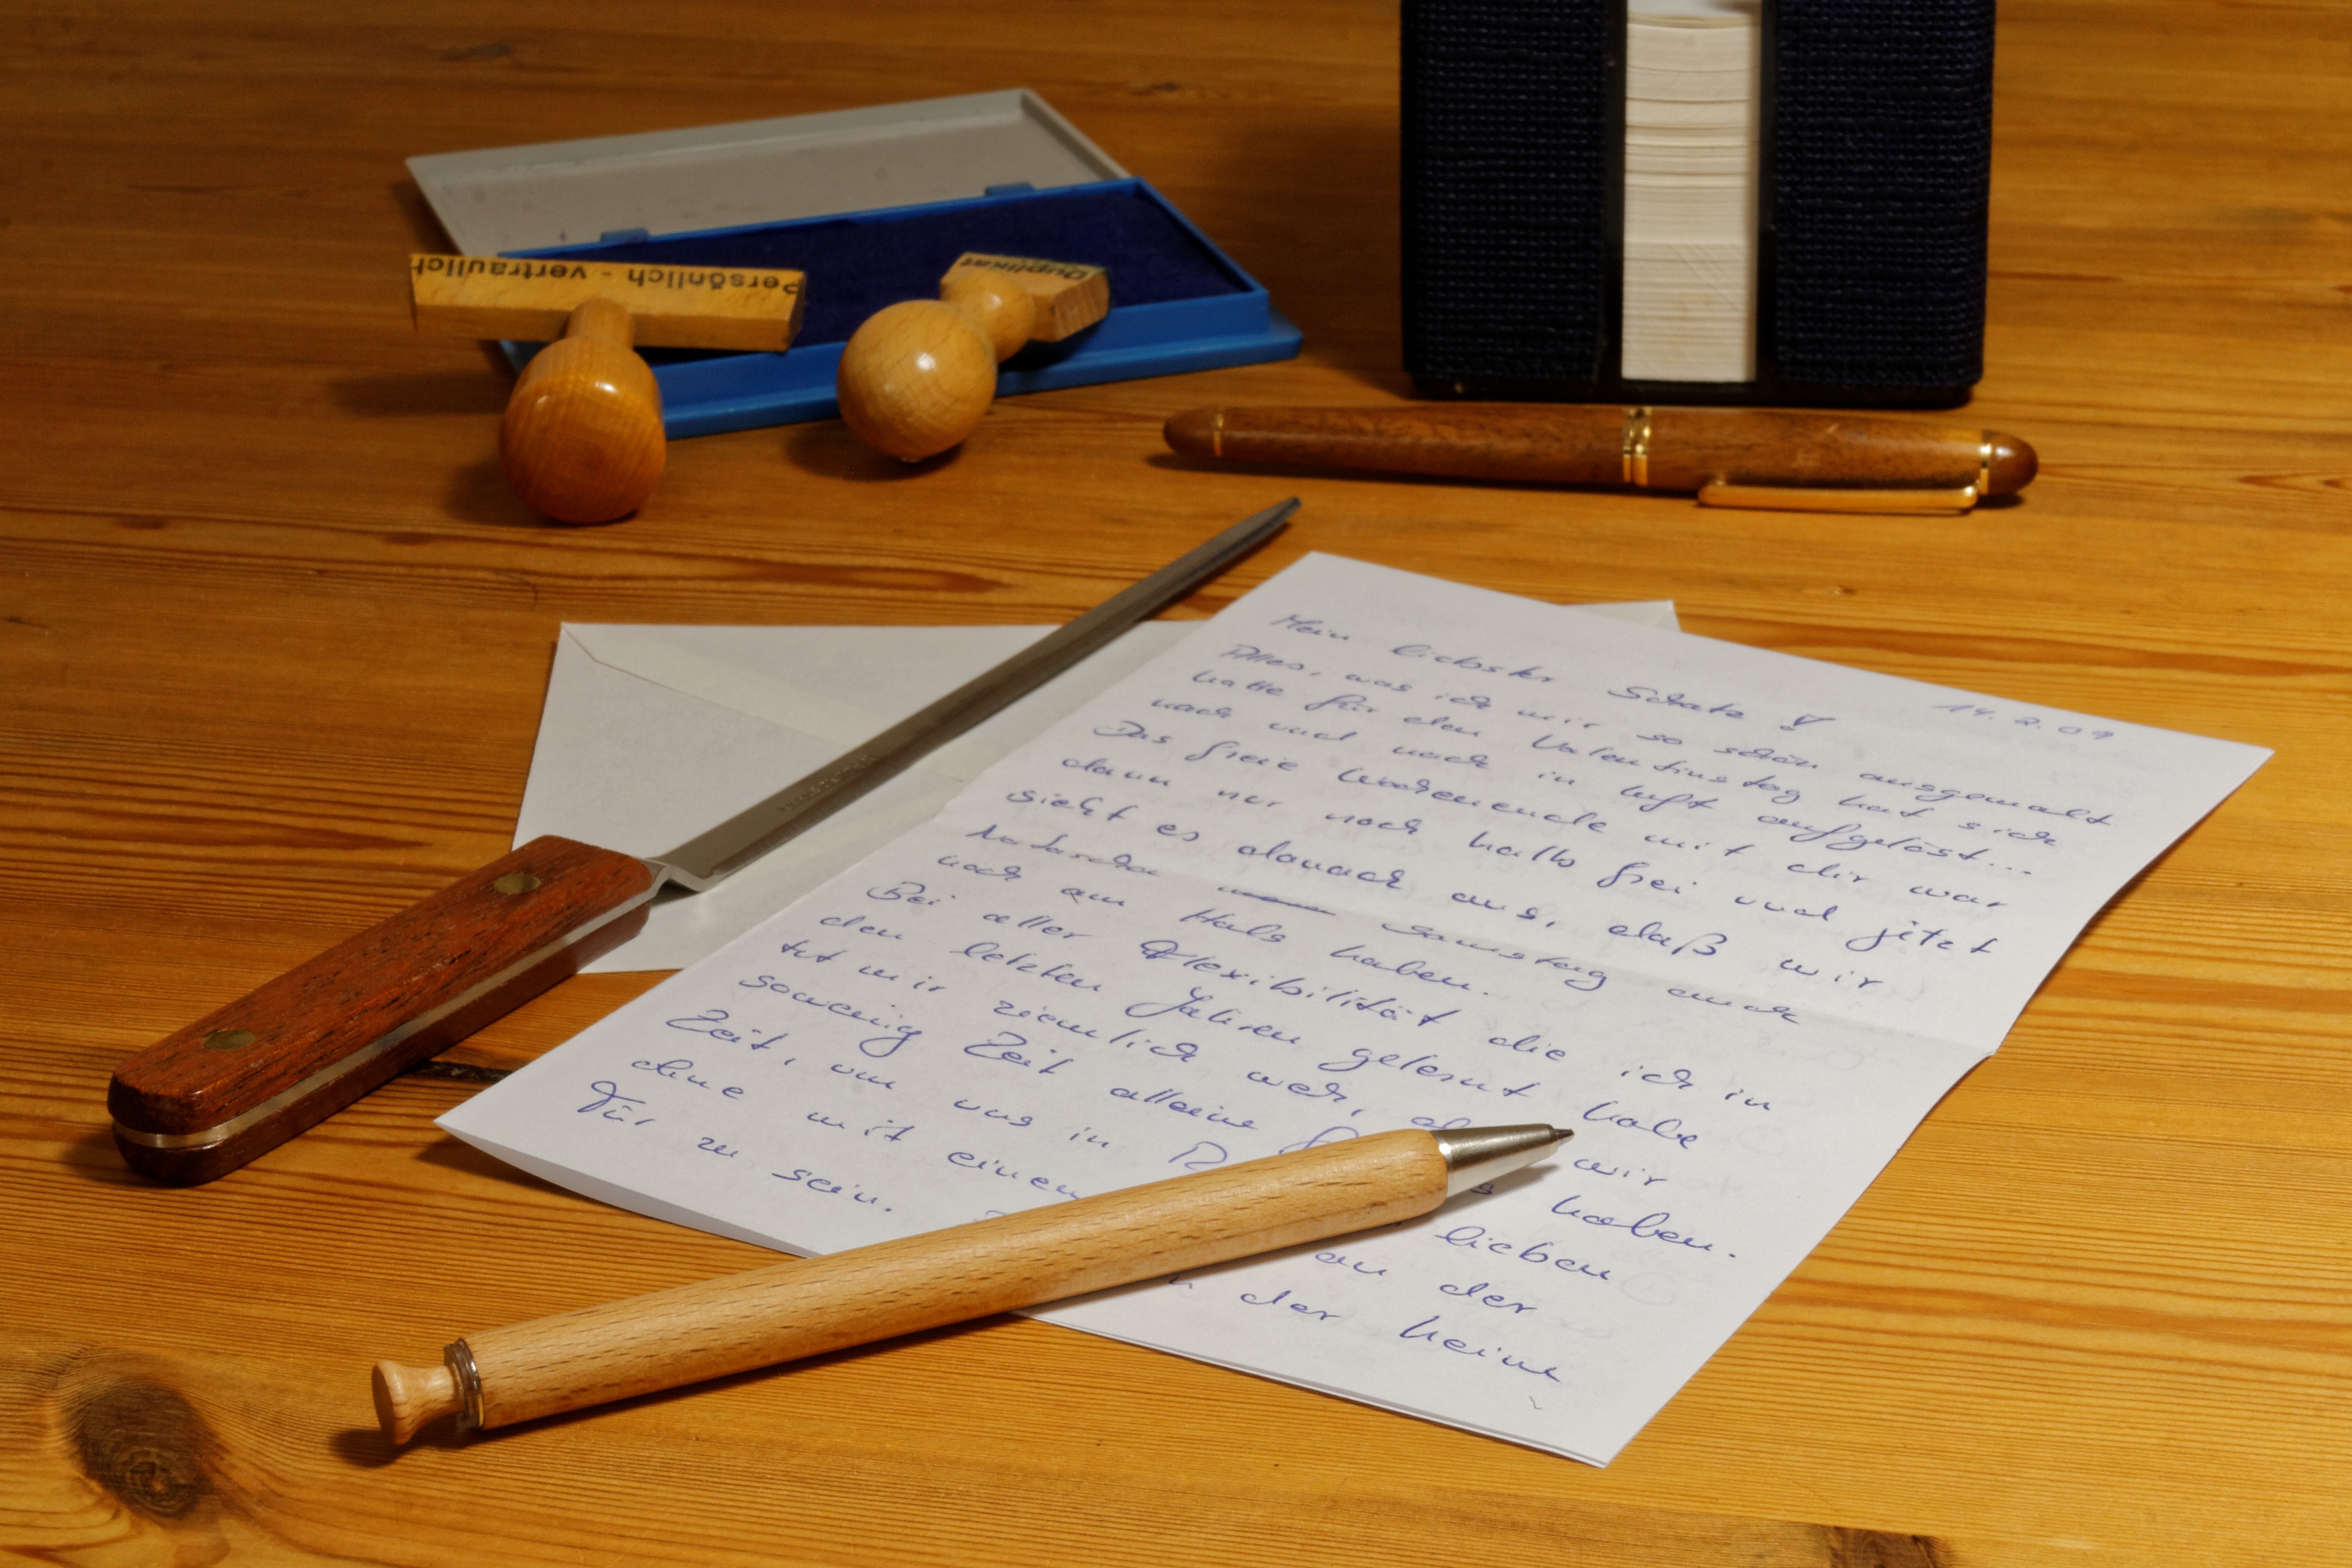 Persönlich - vertraulich
Duplikat
14. 2. 09
Mein liebster Schatz
Alles, was ich mir so schön ausgemalt
hatte für den Valentinstag hat sich
nach und nach in Luft aufgelöst...
Das freie Wochenende mit dir war
dann nur noch halb frei und jetzt
sieht es danach aus, daß wir
Natascha Samstag auch
noch am Hals haben.
Bei aller Flexibilität die ich in
den letzten Jahren gelernt habe
tut mir ziemlich weh, wir
sowenig Zeit alleine haben.
Zeit, um uns in lieben
ohne mit einem an der
Tür zu sein. der keine